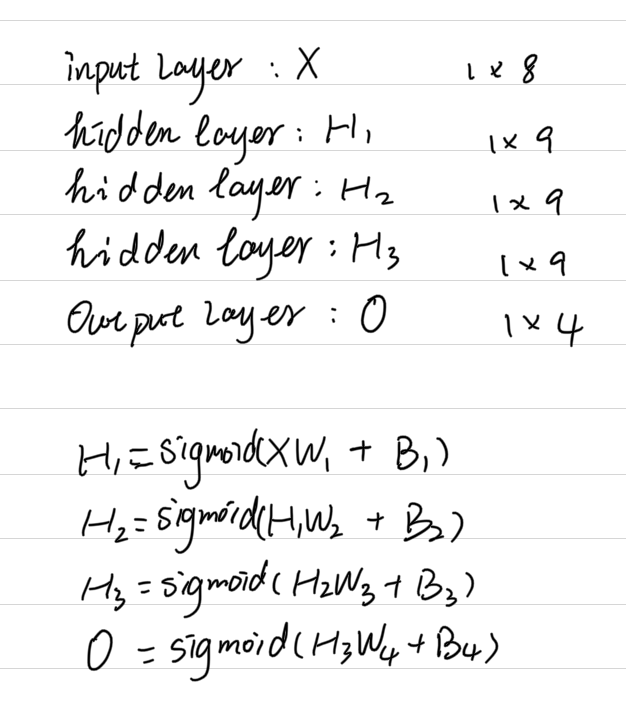 input Layer : X 1 x 8
hidden layer : H₁ 1 x 9
hidden layer : H₂ 1 x 9
hidden layer : H₃ 1 x 9
Output Layer : O 1 x 4
H₁ = sigmoid(XW₁ + B₁)
H₂ = sigmoid(H₁W₂ + B₂)
H₃ = sigmoid(H₂W₃ + B₃)
O = sigmoid(H₃W₄ + B₄)